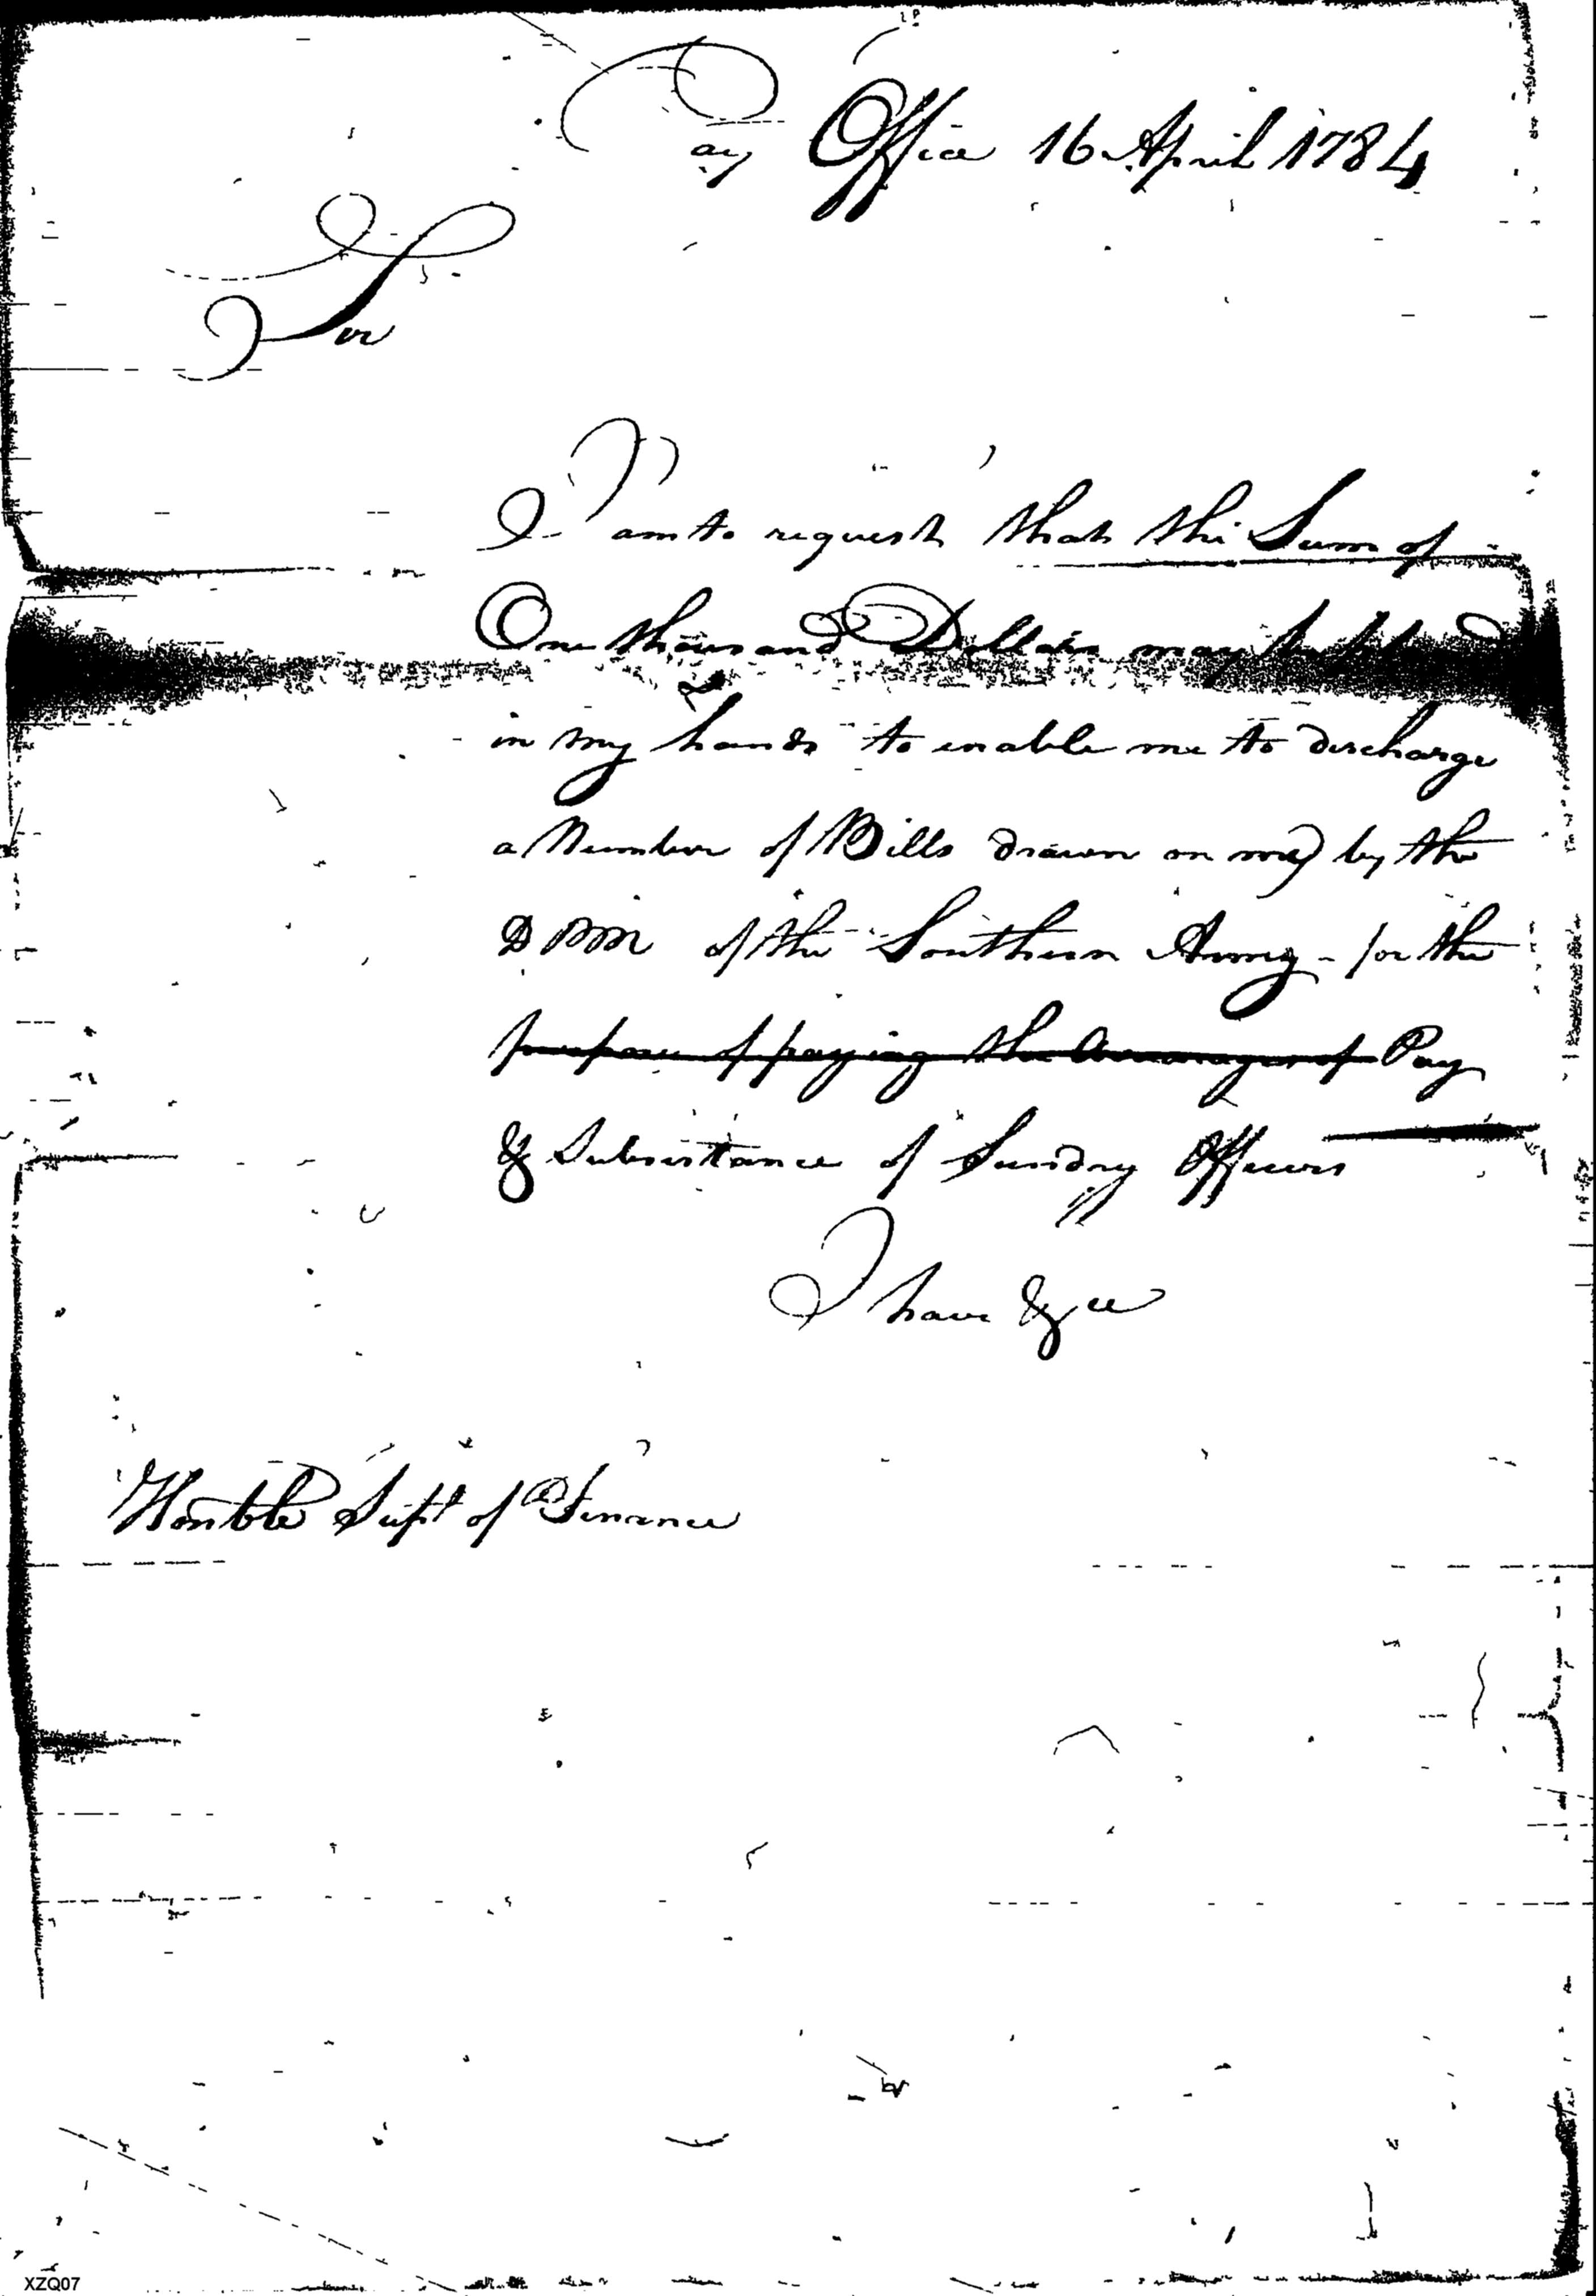 Pay Office 16 April 1784
Sir
I am to request that the Sum of
One thousand Dollars may be placed
in my hands to enable me to discharge
a Number of Bills drawn on me by the
DPM of the Southern Army - for the
purpose of paying the Arrearages of Pay
& Subsistance of Sundry Officers
I have &ce
Honble Supt of Finance
XZQ07